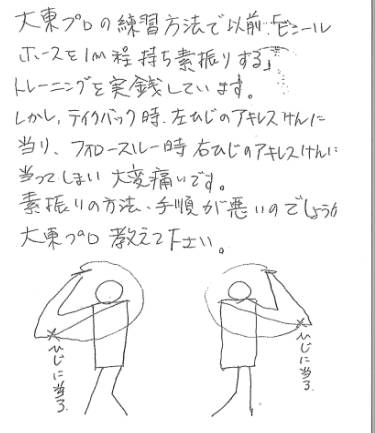 大東プロの練習方法で以前「ビニール
ホースを1m程持ち素振りする」
トレーニングを実銭しています。
しかし、テイクバック時、左ひじのアキレスけんに
当り、フォロースルー時右ひじのアキレスけんに
当ってしまい大変痛いです。
素振りの方法、手順が悪いのでしょうか
大東プロ教えて下さい。
ひじに当る
ひじに当る